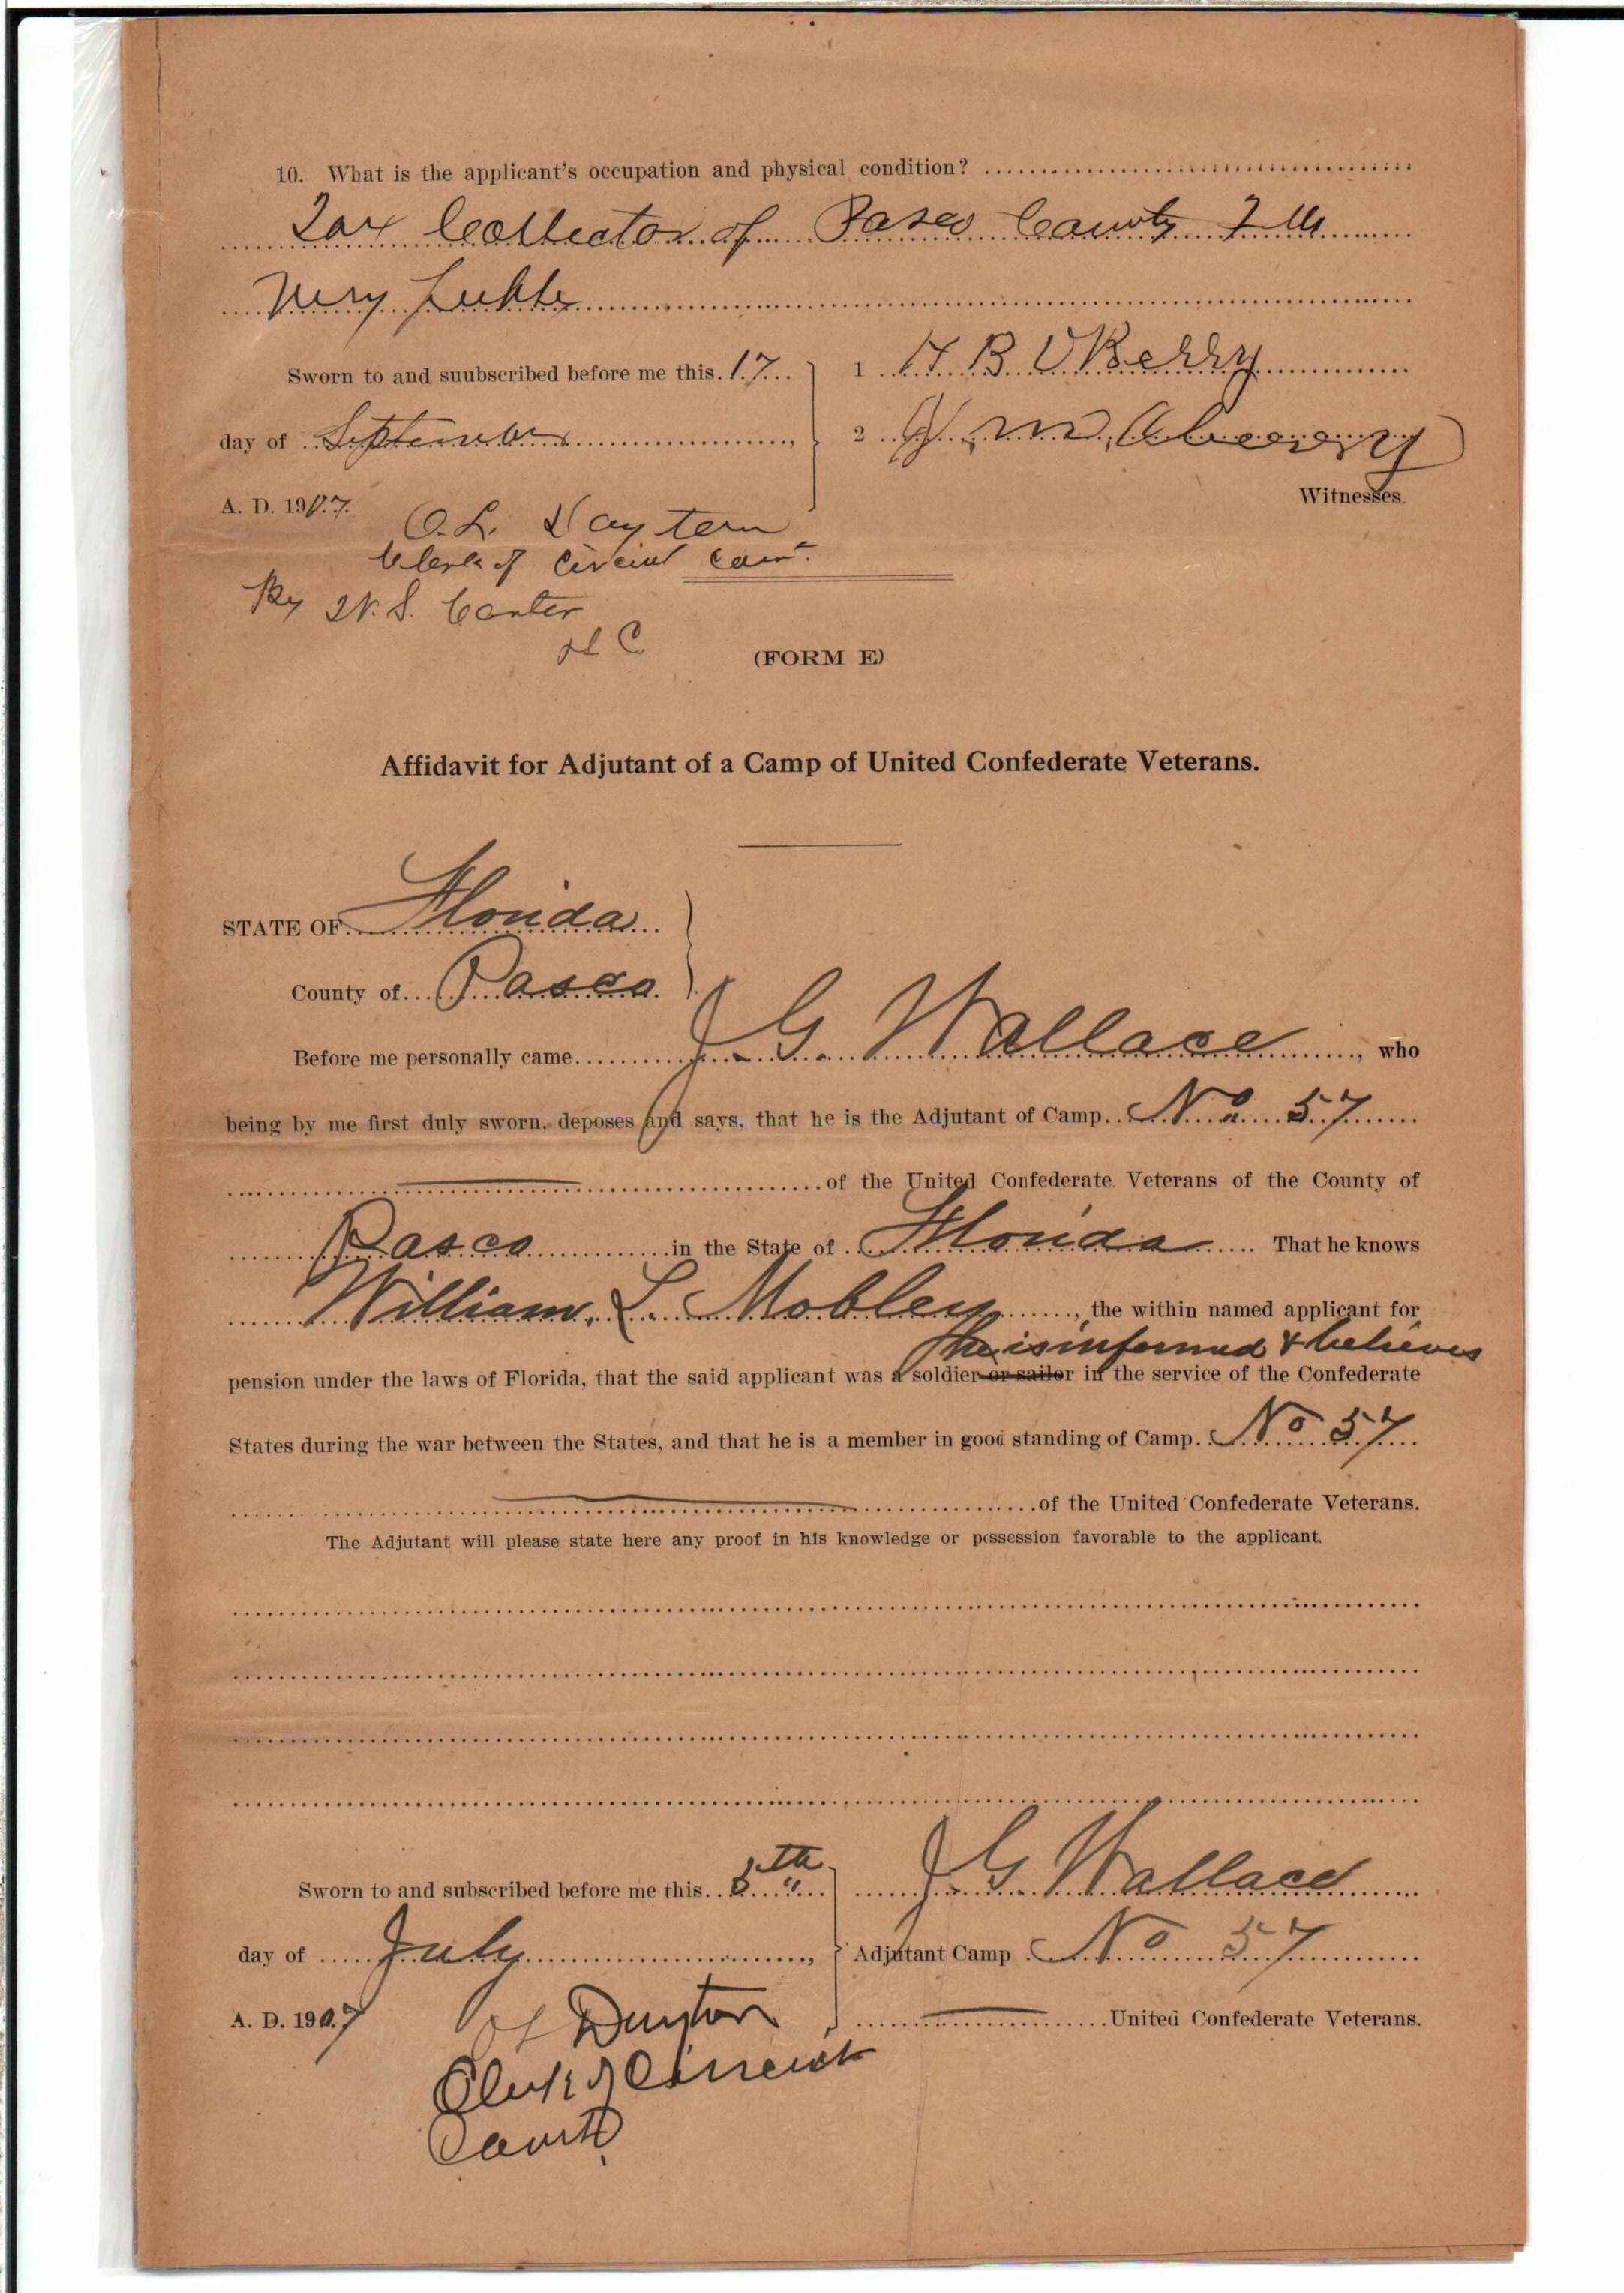 10. What is the applicant's occupation and physical condition?
Tax Collector of Pasco County Fla
Very feeble
Sworn to and suubscribed before me this 17
1 H. B. Berry
day of September,
2 J. M.
A. D. 1907.
Witnesses.
O. L. Dayton
Clerk of Circuit Court.
By W. S. Carter
D C
(FORM E)
Affidavit for Adjutant of a Camp of United Confederate Veterans.
STATE OF Florida
County of Pasco
Before me personally came J. G. Wallace, who
being by me first duly sworn, deposes and says, that he is the Adjutant of Camp No 57
of the United Confederate Veterans of the County of
Pasco in the State of Florida That he knows
William L. Mobley, the within named applicant for
he is informed & believes
pension under the laws of Florida, that the said applicant was a soldier or sailor in the service of the Confederate
States during the war between the States, and that he is a member in good standing of Camp No 57
of the United Confederate Veterans.
The Adjutant will please state here any proof in his knowledge or possession favorable to the applicant.
Sworn to and subscribed before me this 5th
J. G. Wallace
day of July,
Adjutant Camp No 57
A. D. 1907
United Confederate Veterans.
O L Dayton
Clerk of Circuit
Court